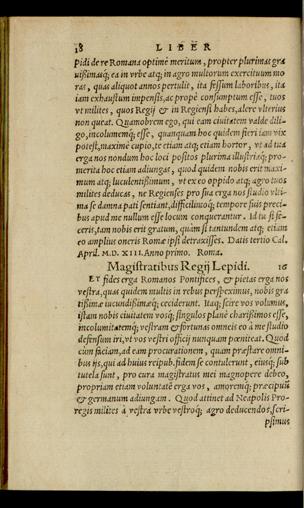 18 LIBER
pidi de re Romana optimè meritum, propter plurimas gra
uißimasq́; ea in vrbe atq; in agro multorum exercituum mo
ras, quas aliquot annos pertulit, ita feßum laboribus, ita
iam exhaustum impensis, ac propè consumptum esse, tuos
vt milites, quos Regij & in Regiensi habes, alere vlterius
non queat. Quamobrem ego, qui eam ciuitatem valde dili-
go, incolumemq́; esse, quanquam hoc quidem fieri iam vix
potest, maximè cupio, te etiam atq; etiam hortor, vt ad tua
erga nos nondum hoc loci positos plurima illustriaq́; pro-
merita hoc etiam adiungas, quod quidem nobis erit maxi-
mum atq; luculentißimum, vt ex eo oppido atq; agro tuos
milites deducas, ne Regienses pro sua erga nos studio vlti-
ma se damna pati sentiant, difficilimoq́; tempore suis preci-
bus apud me nullum esse locum conquerantur. Id tu si fe-
ceris, tam nobis erit gratum, quàm si tantundem atq; etiam
eo amplius oneris Romæ ipsi detraxisses. Datis tertio Cal.
April. M. D. XIII. Anno primo. Roma.
Magistratibus Regij Lepidi. 16
ET fides erga Romanos Pontifices, & pietas erga nos
vestra, quas quidem multis in rebus perspeximus, nobis gra
tißimæ iucundißimæq́; ceciderunt. Itaq; scire vos volumus,
istam nobis ciuitatem vosq́; singulos planè charißimos esse,
incolumitatemq́; vestram & fortunas omneis eo à me studio
defensum iri, vt vos vestri officij nunquam pœniteat. Quod
cùm faciam, ad eam procurationem, quam præstare omni-
bus ijs, qui ad huius reipub. fidem se contulerunt, eiusq́; sub
tutela sunt, pro cura magistratus mei magnopere debeo,
propriam etiam voluntatē erga vos, amoremq́; præcipuū
& germanum adiungam. Quod attinet ad Neapolis Pro-
regis milites à vestra vrbe vestroq́; agro deducendos, scri-
psimus